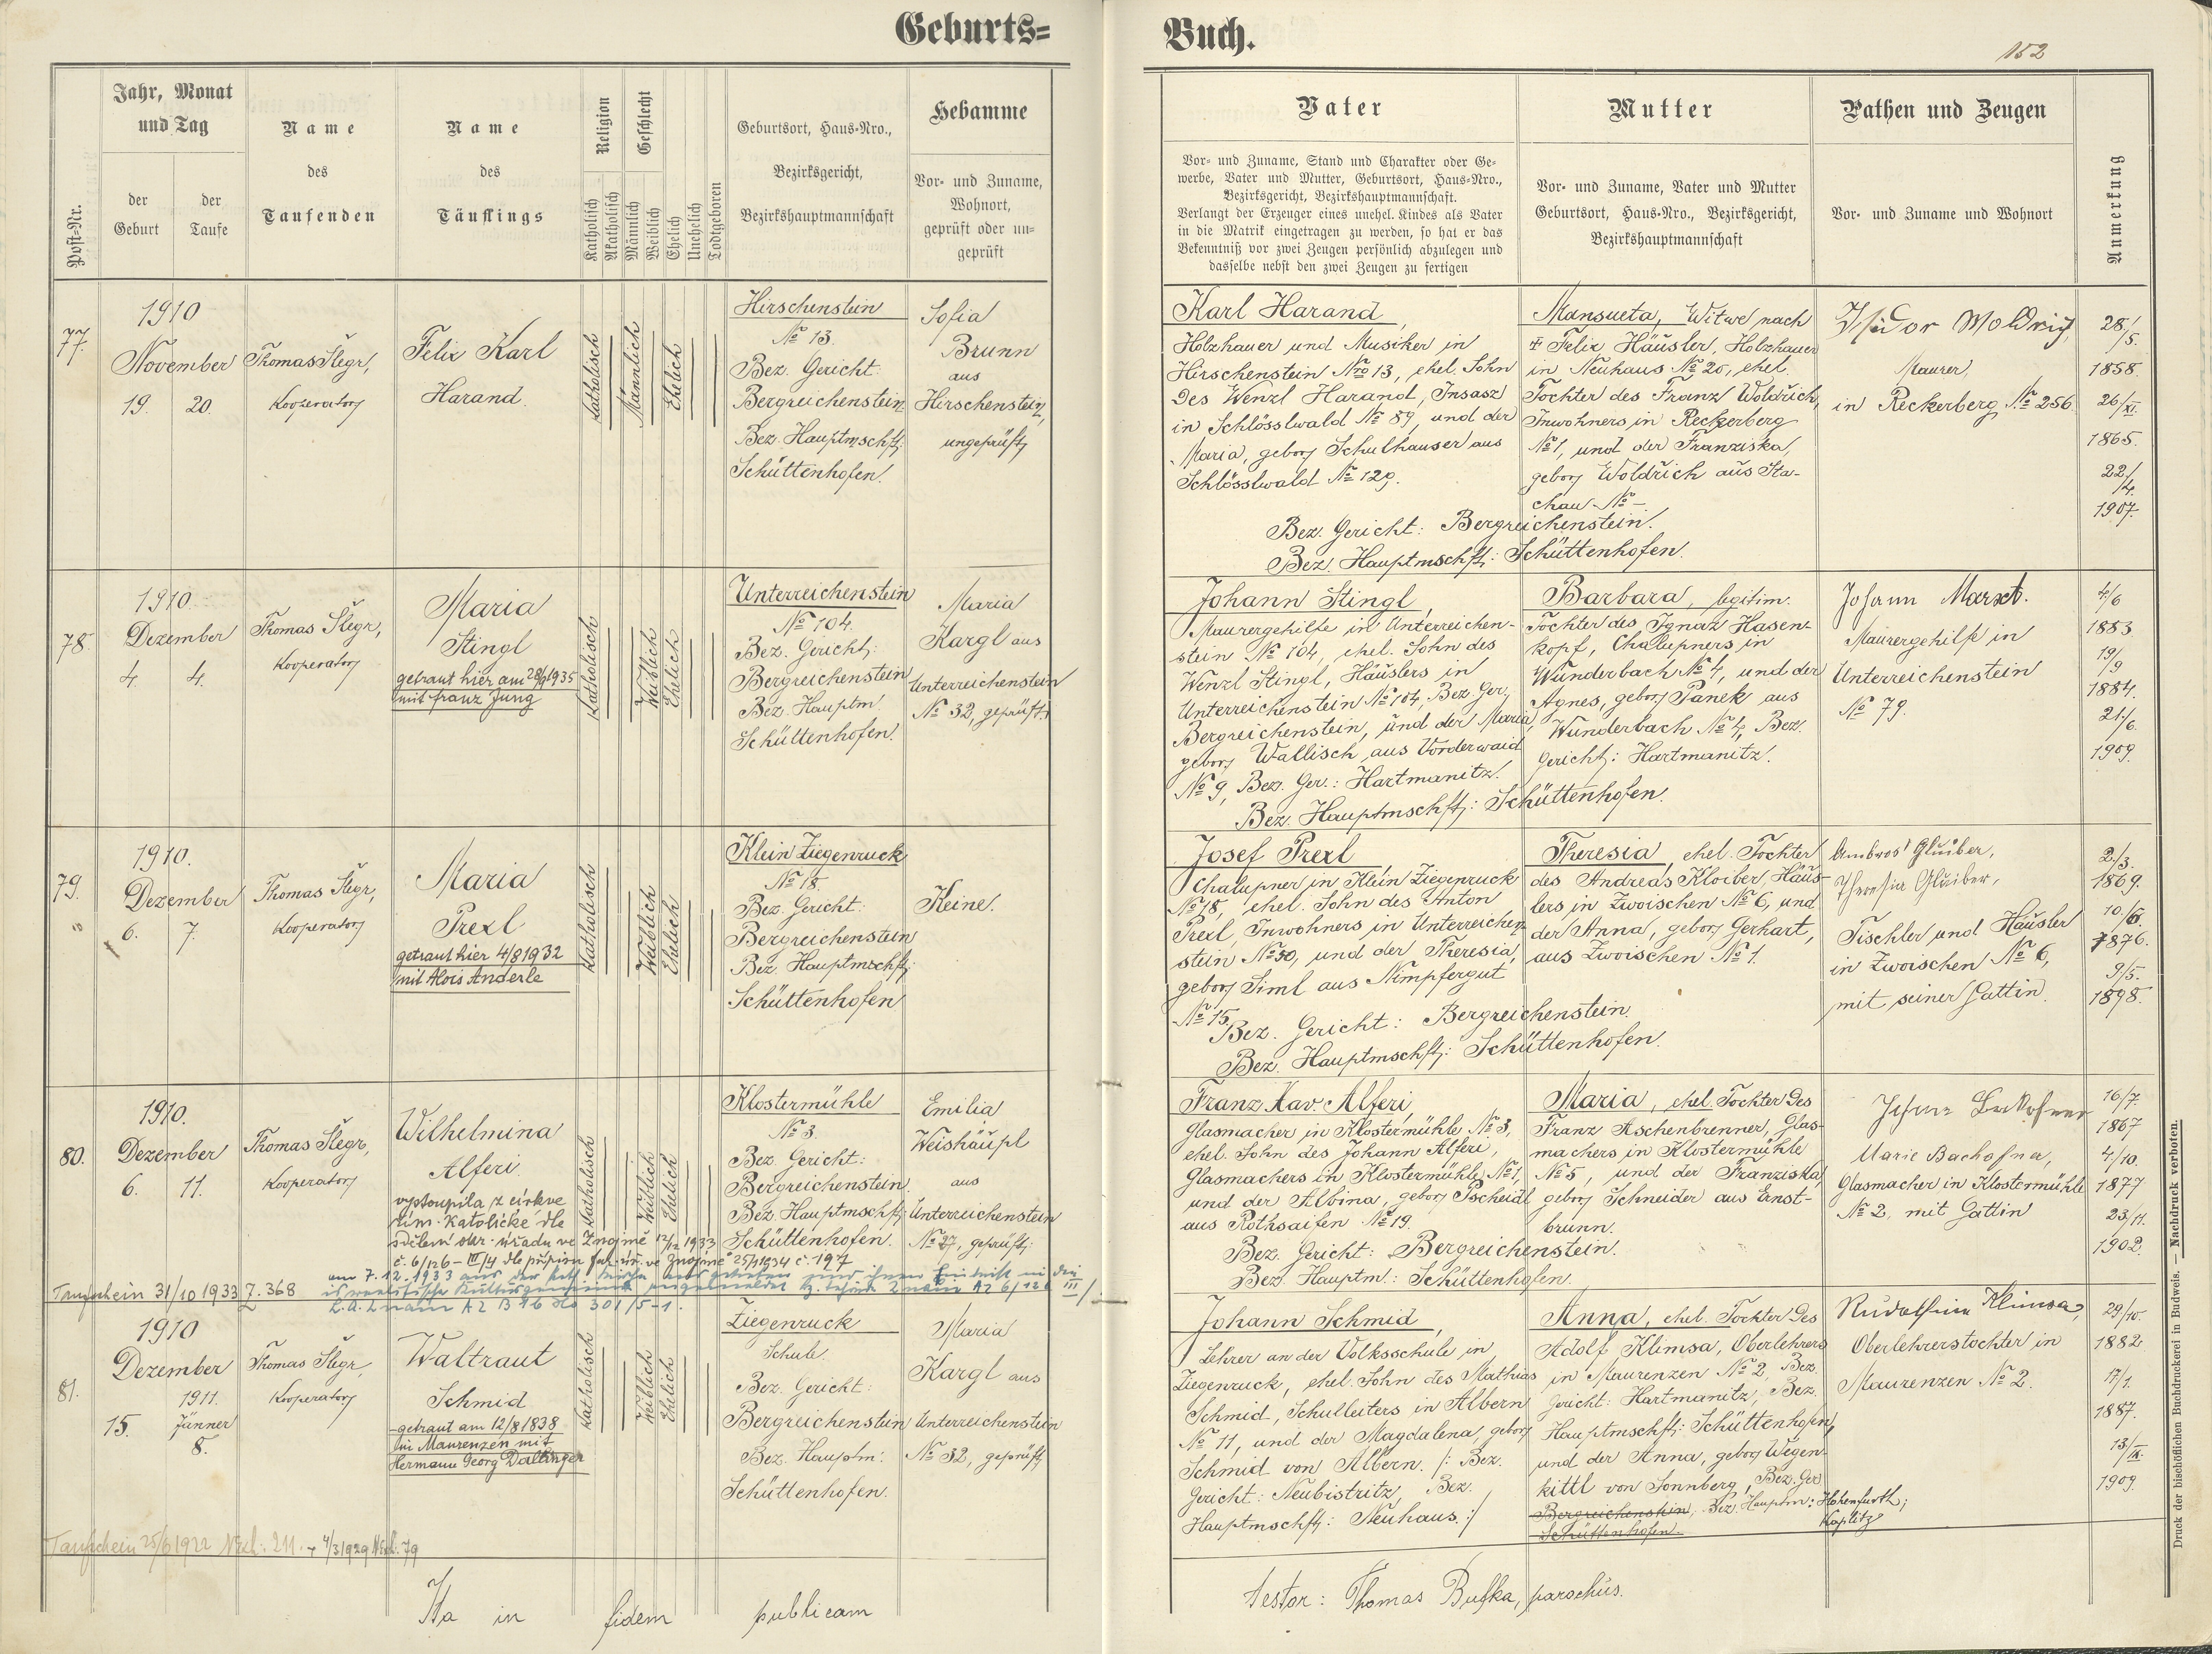 Geburts=
Buch.
152
Post-Nr.
Jahr, Monat
und Tag
der
Geburt
der
Taufe
Name
des
Taufenden
Name
des
Täuflings
Religion
Katholisch
Akatholisch
Geschlecht
Männlich
Weiblich
Ehelich
Unehelich
Todtgeboren
Geburtsort, Haus-Nro.,
Bezirksgericht,
Bezirkshauptmannschaft
Hebamme
Vor- und Zuname,
Wohnort,
geprüft oder un=
geprüft
Vater
Vor- und Zuname, Stand und Charakter oder Ge-
werbe, Vater und Mutter, Geburtsort, Haus-Nro.,
Bezirksgericht, Bezirkshauptmannschaft.
Verlangt der Erzeuger eines unehel. Kindes als Vater
in die Matrik eingetragen zu werden, so hat er das
Bekenntniß vor zwei Zeugen persönlich abzulegen und
dasselbe nebst den zwei Zeugen zu fertigen
Mutter
Vor- und Zuname, Vater und Mutter
Geburtsort, Haus-Nro., Bezirksgericht,
Bezirkshauptmannschaft
Pathen und Zeugen
Vor- und Zuname und Wohnort
Anmerkung
77.
1910
November
19. 20.
Thomas Šlegr,
Kooperator
Felix Karl
Harand.
Katholisch
Männlich
Ehelich
Hirschenstein
№ 13.
Bez. Gericht:
Bergreichenstein
Bez. Hauptmschft:
Schüttenhofen.
Sofia
Brunn
aus
Hirschenstein,
ungeprüft
Karl Harand,
Holzhauer und Musiker in
Hirschenstein Nro 13, ehel. Sohn
des Wenzl Harand, Insasz
in Schlösslwald № 89, und der
Maria, gebor Schulhauser aus
Schlösslwald № 129.
Mansueta, Witwe nach
† Felix Häusler, Holzhauer
in Neuhaus № 20, ehel.
Tochter des Franz Woldřich,
Inwohners in Reckerberg
№ 1, und der Franziska,
gebor Woldřich aus Sta-
chau № -.
Bez. Gericht: Bergreichenstein.
Bez. Hauptmschft: Schüttenhofen.
Isidor Woldrich,
Maurer,
in Reckerberg № 256.
28/
/5.
1858.
26/XI.
1865.
22/
/4.
1907.
78.
1910.
Dezember
4. 4.
Thomas Šlegr,
Kooperator
Maria
Stingl
getraut hier am 28/9 1935
mit Franz Jung
Katholisch
Weiblich
Ehelich
Unterreichenstein
№ 104.
Bez. Gericht:
Bergreichenstein
Bez. Hauptm.
Schüttenhofen.
Maria
Kargl aus
Unterreichenstein
№ 32, geprüft.
Johann Stingl,
Maurergehilfe in Unterreichen-
stein № 104, ehel. Sohn des
Wenzl Stingl, Häuslers in
Unterreichenstein № 104, Bez. Ger.
Bergreichenstein, und der Maria,
gebor Wallisch aus Vorderwaid
№ 9, Bez. Ger.: Hartmanitz.
Barbara, legitim.
Tochter des Ignaz Hasen-
kopf, Chalupners in
Wunderbach № 4, und der
Agnes, gebor Panek aus
Wunderbach № 4, Bez.
Gericht: Hartmanitz.
Bez. Hauptmschft: Schüttenhofen.
Johann Marxt.
Maurergehilfe in
Unterreichenstein
№ 79.
4/6
1883.
19/
/9
1884.
21/6.
1909.
79.
1910.
Dezember
6. 7.
Thomas Šlegr,
Kooperator
Maria
Prexl
getraut hier 4/8 1932
mit Alois Anderle
Katholisch
Weiblich
Ehelich
Klein Ziegenruck
№ 18.
Bez. Gericht:
Bergreichenstein
Bez. Hauptmschft:
Schüttenhofen
Keine.
Josef Prexl,
Chalupner in Klein Ziegenruck
№ 18, ehel. Sohn des Anton
Prexl, Inwohners in Unterreichen
stein № 50, und der Theresia,
gebor Siml aus Nimpfergut
№ 15.
Theresia, ehel. Tochter
des Andreas Kloiber, Häus-
lers in Zwoischen № 6, und
der Anna, gebor Gerhart,
aus Zwoischen № 1.
Bez. Gericht: Bergreichenstein.
Bez. Hauptmschft: Schüttenhofen.
Ambros Gluiber,
Theresia Gluiber,
Tischler und Häusler
in Zwoischen № 6,
mit seiner Gattin.
2/3.
1869.
10/6.
1876.
9/5.
1898.
80.
1910.
Dezember
6. 11.
Thomas Šlegr,
Kooperator
Wilhelmina
Alferi
vystoupila z církve
řím. katolické dle
sdělení okr. úřadu ve Znojmě 12/12 1933
č. 6/126 – III/4 dle přípisu far. úř. ve Znojmě 25/1 1934 č. 197
am 7.12.1933 aus der kath. Kirche ausgetreten
Taufschein 31/10 1933 Z. 368
Katholisch
Weiblich
Ehelich
Klostermühle
№ 3.
Bez. Gericht:
Bergreichenstein
Bez. Hauptmschft:
Schüttenhofen.
Emilia
Weishäupl
aus
Unterreichenstein
№ 27, geprüft:
Franz Xav. Alferi,
Glasmacher in Klostermühle № 3,
ehel. Sohn des Johann Alferi,
Glasmachers in Klostermühle № 1,
und der Albina, gebor Pscheidl
aus Rothsaifen № 19.
Maria, ehel. Tochter des
Franz Aschenbrenner, Glas-
machers in Klostermühle
№ 5, und der Franziska,
gebor Schneider aus Ernst-
brunn.
Bez. Gericht: Bergreichenstein.
Bez. Hauptm.: Schüttenhofen.
Marie Bachofner,
Glasmacher in Klostermühle
№ 2, mit Gattin
16/7.
1867
4/10.
1877
23/11.
1902.
81.
1910
Dezember
1911.
15. Jänner
8.
Thomas Šlegr,
Kooperator
Waltraut
Schmid
getraut am 12/8 1838
in Maurenzen mit
Hermann Georg Dallinger
Katholisch
Weiblich
Ehelich
Ziegenruck
Schule.
Bez. Gericht:
Bergreichenstein
Bez. Hauptm:
Schüttenhofen.
Maria
Kargl aus
Unterreichenstein
№ 32, geprüft
Johann Schmid,
Lehrer an der Volksschule in
Ziegenruck, ehel. Sohn des Mathias
Schmid, Schulleiters in Albern
№ 11, und der Magdalena, gebor
Schmid von Albern. /: Bez.
Gericht: Neubistritz, Bez.
Hauptmschft: Neuhaus. :/
Anna, ehel. Tochter des
Adolf Klimsa, Oberlehrers
in Maurenzen № 2, Bez.
Gericht: Hartmanitz, Bez.
Hauptmschft: Schüttenhofen,
und der Anna, gebor Wegen-
kittl von Sonnberg, Bez. Ger.
Bergreichenstein, Bez. Hauptm: Hohenfurth;
Schüttenhofen Kaplitz
Rudolfine Klimsa,
Oberlehrerstochter in
Maurenzen № 2.
29/10.
1882
17/1.
1887.
13/IX.
1909.
Taufschein 25/6 1922 Nexh: 211. + 4/3 1929 Nexh. 79
Ita in fidem publicam
testor: Thomas Bufka, parochus.
Druck der bischöflichen Buchdruckerei in Budweis. — Nachdruck verboten.